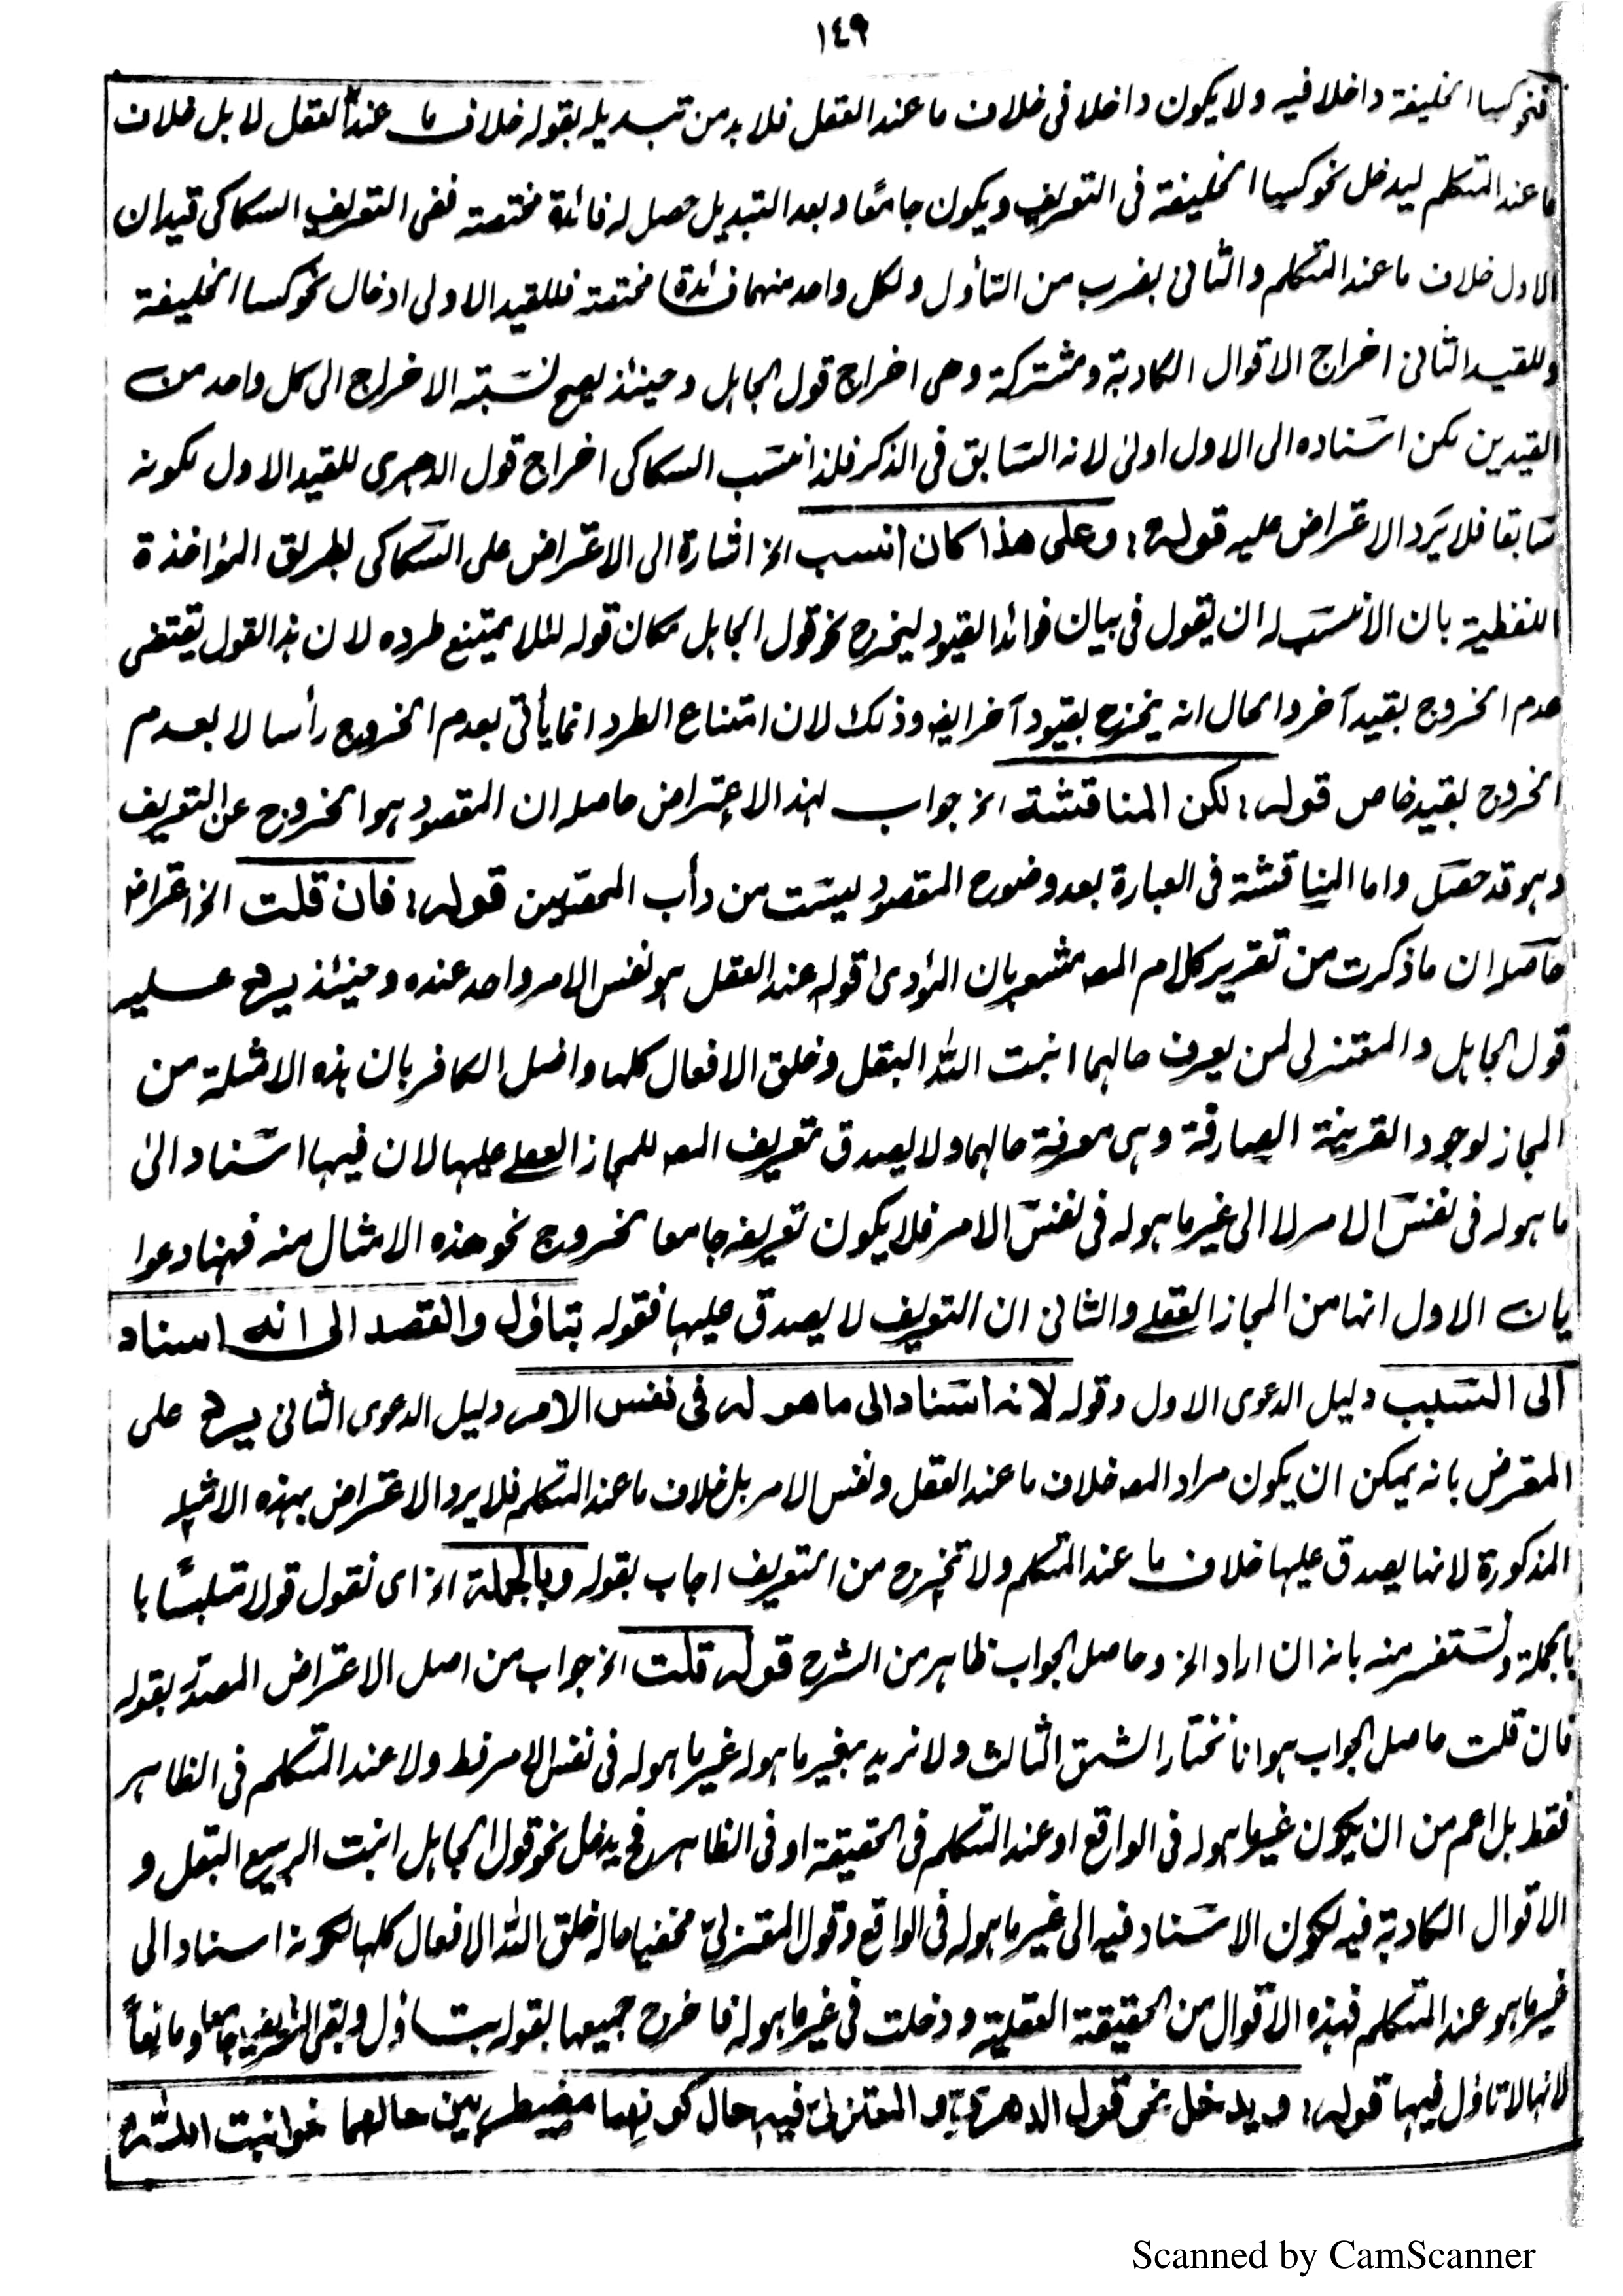 ١٤٩
فنحو كسا الخليفة داخلا فيه ولا يكون داخلا فى خلاف ما عند العقل فلا بد من تبديله بقوله خلاف ما عند العقل لا بل خلاف
ما عند المتكلم ليدخل نحو كسا الخليفة فى التعريف ويكون جامعًا وبعد التبديل حصل له فائدة مختصته ففى التعريف السكاكى قيدان
الاول خلاف ما عند المتكلم والثانى بضرب من التأول ولكل واحد منهما فائدة مختصته فللقيد الاولى ادخال نحو كسا الخليفة
وللقيد الثانى اخراج الاقوال الكاذبة ومشتركة وهى اخراج قول الجاہل وحينئذ يصح نسبته الاخراج الى كل واحد من
القيدين لكن اسناده الى الاول اولى لانه السابق فى الذكر فلذا نسب السكاكى اخراج قول الدهرى للقيد الاول لكونه
سابقا فلا يرد الاعتراض عليه قوله: وعلى هذا كان انسب الخ اشارة الى الاعتراض على السكاكى بطريق المؤاخذة
اللفظية بان الأنسب له ان يقول فى بيان فوائد القيود ليخرج نحو قول الجاہل مكان قوله لئلا يمتنع طرده لان ہذا القول يقتضى
عدم الخروج بقيد آخر والحال انه يخرج بقيود آخر ايضا وذلك لان امتناع الطرد انما يأتى بعدم الخروج رأسا لا بعدم
الخروج بقيد خاص قوله: لكن المناقشة الخ جواب لہذا الاعتراض حاصله ان المقصود ہو الخروج عن التعريف
وہو قد حصل واما المناقشة فى العبارة بعد وضوح المقصود ليست من دأب المحققين قوله: فان قلت الخ اعتراض
حاصله ان ما ذكرت من تقرير كلام المصـ مشعر بان المؤدى قوله عند العقل ہو نفس الامر واحد عنده وحينئذ يرد عليه
قول الجاہل والمعتزلى لمن يعرف حالہما انبت الله البقل وخلق الافعال كلہا واضل الكافر بان ہذه الامثلة من
المجاز لوجود القرينة الصارفة وہى معرفة حالہما ولا يصدق تعريف المصـ للمجاز العقلى عليہا لان فيہا اسناد الى
ما ہو له فى نفس الامر لا الى غير ما ہو له فى نفس الامر فلا يكون تعريفه جامعا لخروج نحو هذه الامثال منه فہنا دعوا
يان الاول انہا من المجاز العقلى والثانى ان التعريف لا يصدق عليہا فقوله بتاول والقصد الى انه اسناد
الى السبب دليل الدعوى الاول وقوله لانه اسناد الى ما هو له فى نفس الامر دليل الدعوى الثانى يرد على
المعترض بانه يمكن ان يكون مراد المصـ خلاف ما عند العقل ونفس الامر بل خلاف ما عند المتكلم فلا يرد الاعتراض بہذه الامثلة
المذكورة لانہا يصدق عليہا خلاف ما عند المتكلم ولا تخرج من التعريف اجاب بقوله وبالجملة الخ اى نقول قولا متلبسًا با
بالجملة ونستفسر منه بانه ان اراد الخ وحاصل الجواب ظاہر من الشرح قوله قلت الخ جواب من اصل الاعتراض المصدر بقوله
فان قلت حاصل الجواب ہو انا نختار الشق الثالث ولا نريد بغير ما ہو له غير ما ہو له فى نفس الامر فقط ولا عند المتكلم فى الظاہر
فقط بل اعم من ان يكون غير ما ہو له فى الواقع او عند المتكلم فى الحقيقة او فى الظاہر فح يدخل نحو قول الجاہل انبت الربيع البقل و
الاقوال الكاذبة فيه لكون الاسناد فيه الى غير ما ہو له فى الواقع وقول المعتزلى مخفيا حاله خلق الله الافعال كلہا لكونه اسناد الى
غير ما ہو عند المتكلم فہذه الاقوال من الحقيقة العقلية ودخلت فى غير ما ہو له فاخرج جميعہا بقوله بتاول وبقى التعريف جامعا ومانعًا
لانہا لا تاول فيہا قوله: ويدخل نحو قول الدهرى والمعتزلى فيه حال كونهما مضطربين حالهما نحو انبت الله
Scanned by CamScanner